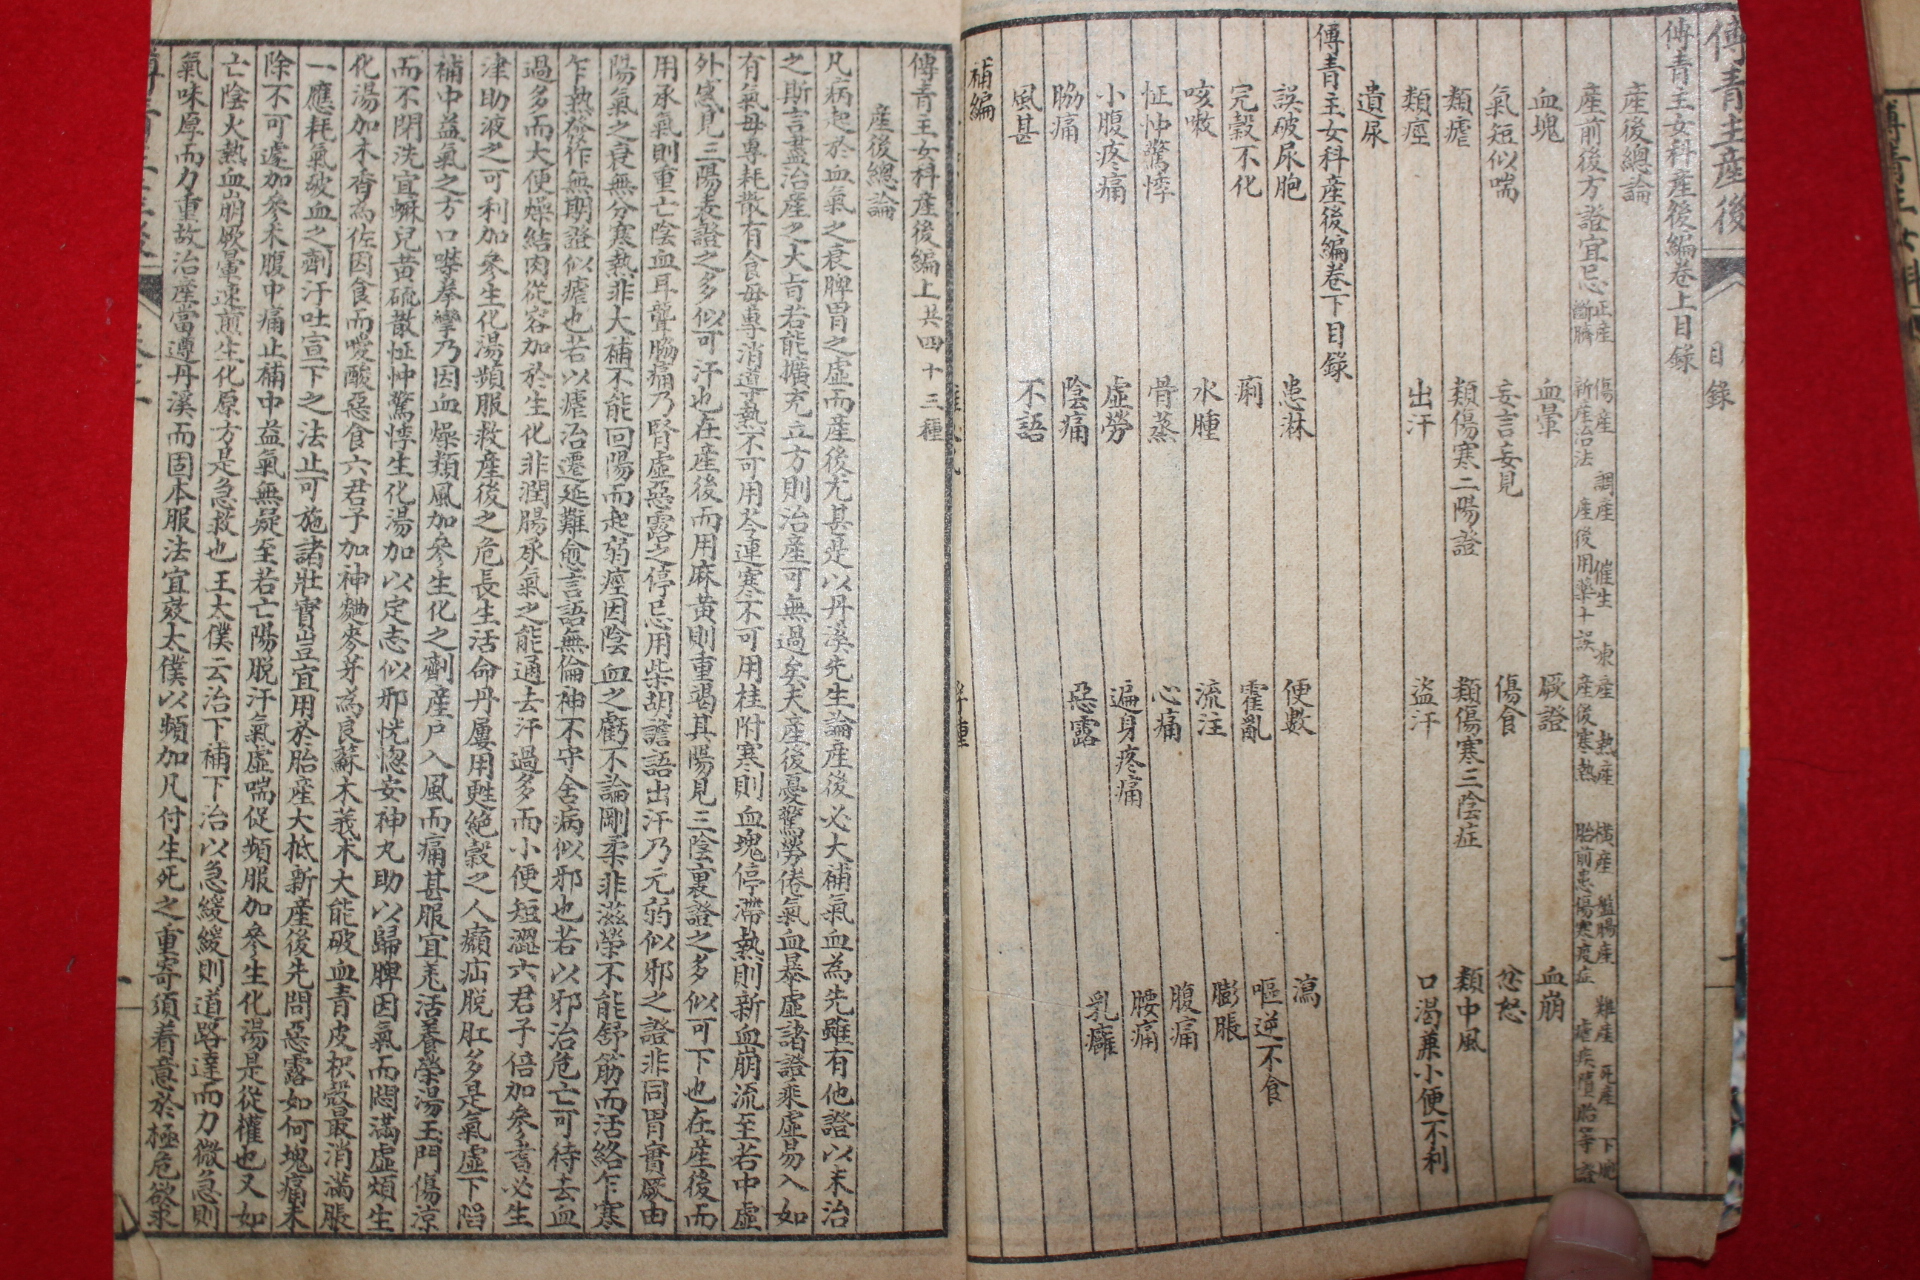 傅青主產後
目錄
傅青主女科產後編卷上目錄
產後總論
產前後方證宜忌 正產 傷產 調產 催生 凍產 熱產 橫產 盤腸產 難產 死產 下胞
斷臍 新產治法 產後用藥十誤 產後寒熱 胎前患傷寒疫症 瘧疾墮胎等證
血塊 血暈 厥證 血崩
氣短似喘 妄言妄見 傷食 忿怒
類瘧 類傷寒二陽證 類傷寒三陰症 類中風
類痙 出汗 盜汗 口渴兼小便不利
遺尿
傅青主女科產後編卷下目錄
誤破尿胞 患淋 便數 瀉
完穀不化 痢 霍亂 嘔逆不食
咳嗽 水腫 流注 膨脹
怔忡驚悸 骨蒸 心痛 腹痛
小腹疼痛 虛勞 遍身疼痛 腰痛
脇痛 陰痛 惡露 乳癰
風甚 不語
補編
傅青主女科產後編上共四十三種
產後總論
凡病起於血氣之衰脾胃之虛而產後尤甚是以丹溪先生論產後必大補氣血為先雖有他證以末治
之斯言盡治產之大旨若能擴充立方則治產可無過矣夫產後憂驚勞倦氣血暴虛諸證乘虛易入如
有氣毋專耗散有食毋專消導熱不可用芩連寒不可用桂附寒則血塊停滯熱則新血崩流至若中虛
外感見三陽表證之多似可汗也在產後而用麻黃則重竭其陽見三陰裏證之多似可下也在產後而
用承氣則重亡陰血耳聾脇痛乃腎虛惡露之停忌用柴胡譫語出汗乃元弱似邪之證非同胃實厥由
陽氣之衰無分寒熱非大補不能回陽而起弱痙因陰血之虧不論剛柔非滋榮不能舒筋而活絡乍寒
乍熱發作無期證似瘧也若以瘧治遷延難愈言語無倫神不守舍病似邪也若以邪治危亡可待去血
過多而大便燥結肉從容加於生化非潤腸承氣之能通去汗過多而小便短澀六君子倍加參耆必生
津助液之可利加參生化湯頻服救產後之危長生活命丹屢用甦絕穀之人癲疝脫肛多是氣虛下陷
補中益氣之方口噤拳攣乃因血燥類風加參生化之劑產戶入風而痛甚服宜羌活養榮湯玉門傷涼
而不閉洗宜𧏖兒黃硫散怔忡驚悸生化湯加以定志似邪恍惚安神丸助以歸脾因氣而悶滿虛煩生
化湯加木香為佐因食而噯酸惡食六君子加神麯麥芽為良蘇木莪朮大能破血青皮枳殼最消滿脹
一應耗氣破血之劑汗吐宣下之法止可施諸壯實豈宜用於胎產大抵新產後先問惡露如何塊痛未
除不可遽加參朮腹中痛止補中益氣無疑至若亡陽脫汗氣虛喘促頻服加參生化湯是從權也又如
亡陰火熱血崩厥暈速煎生化原方是急救也王太僕云治下補下治以急緩緩則道路達而力微急則
氣味厚而力重故治產當遵丹溪而固本服法宜效太僕以頻加凡付生死之重寄須着意於極危欲求